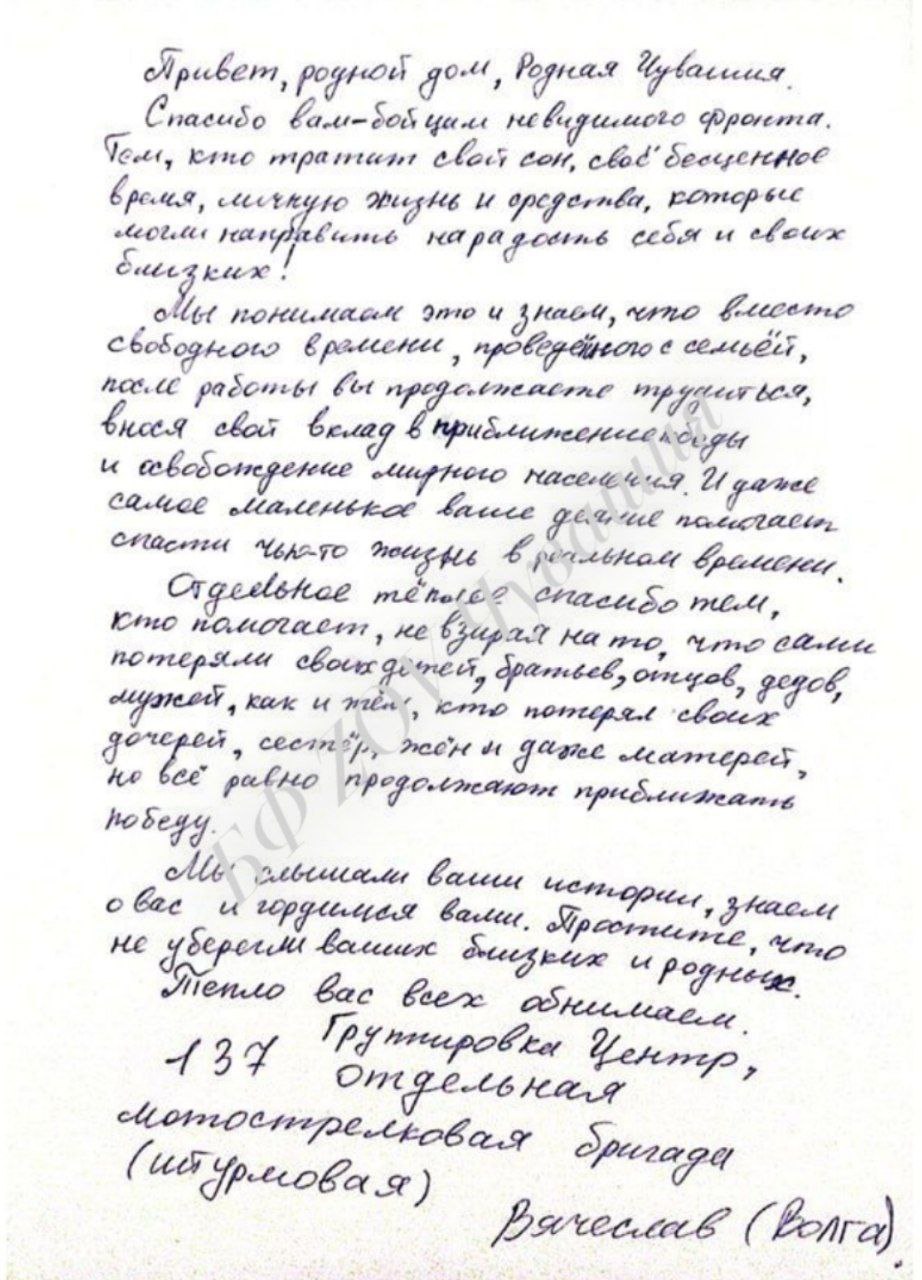 Привет, родной дом, Родная Чувашия.
Спасибо вам-бойцам невидимого фронта.
Тем, кто тратит свой сон, своё бесценное
время, личную жизнь и средства, которые
могли направить на радость себя и своих
близких!
Мы понимаем это и знаем, что вместо
свободного времени, проведённого с семьёй,
после работы вы продолжаете трудиться,
внося свой вклад в приближение победы
и освобождение мирного населения. И даже
самое маленькое ваше деяние помогает
спасти чью-то жизнь в реальном времени.
Отдельное тёплое спасибо тем,
кто помогает, не взирая на то, что сами
потеряли своих детей, братьев, отцов, дедов,
мужей, как и тем, кто потерял своих
дочерей, сестёр, жён и даже матерей,
но всё равно продолжают приближать
победу.
Мы слышали ваши истории, знаем
о вас и гордимся вами. Простите, что
не уберегли ваших близких и родных.
Тепло вас всех обнимаем.
Группировка Центр,
137 отдельная
мотострелковая бригада
(штурмовая)
Вячеслав (Волга)
БФ ZOV Чувашия